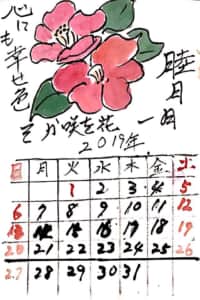 睦月 一月
心にも幸せ色
その咲き花
2019年
日 月 火 水 木 金 土
1 2 3 4 5
6 7 8 9 10 11 12
13 14 15 16 17 18 19
20 21 22 23 24 25 26
27 28 29 30 31